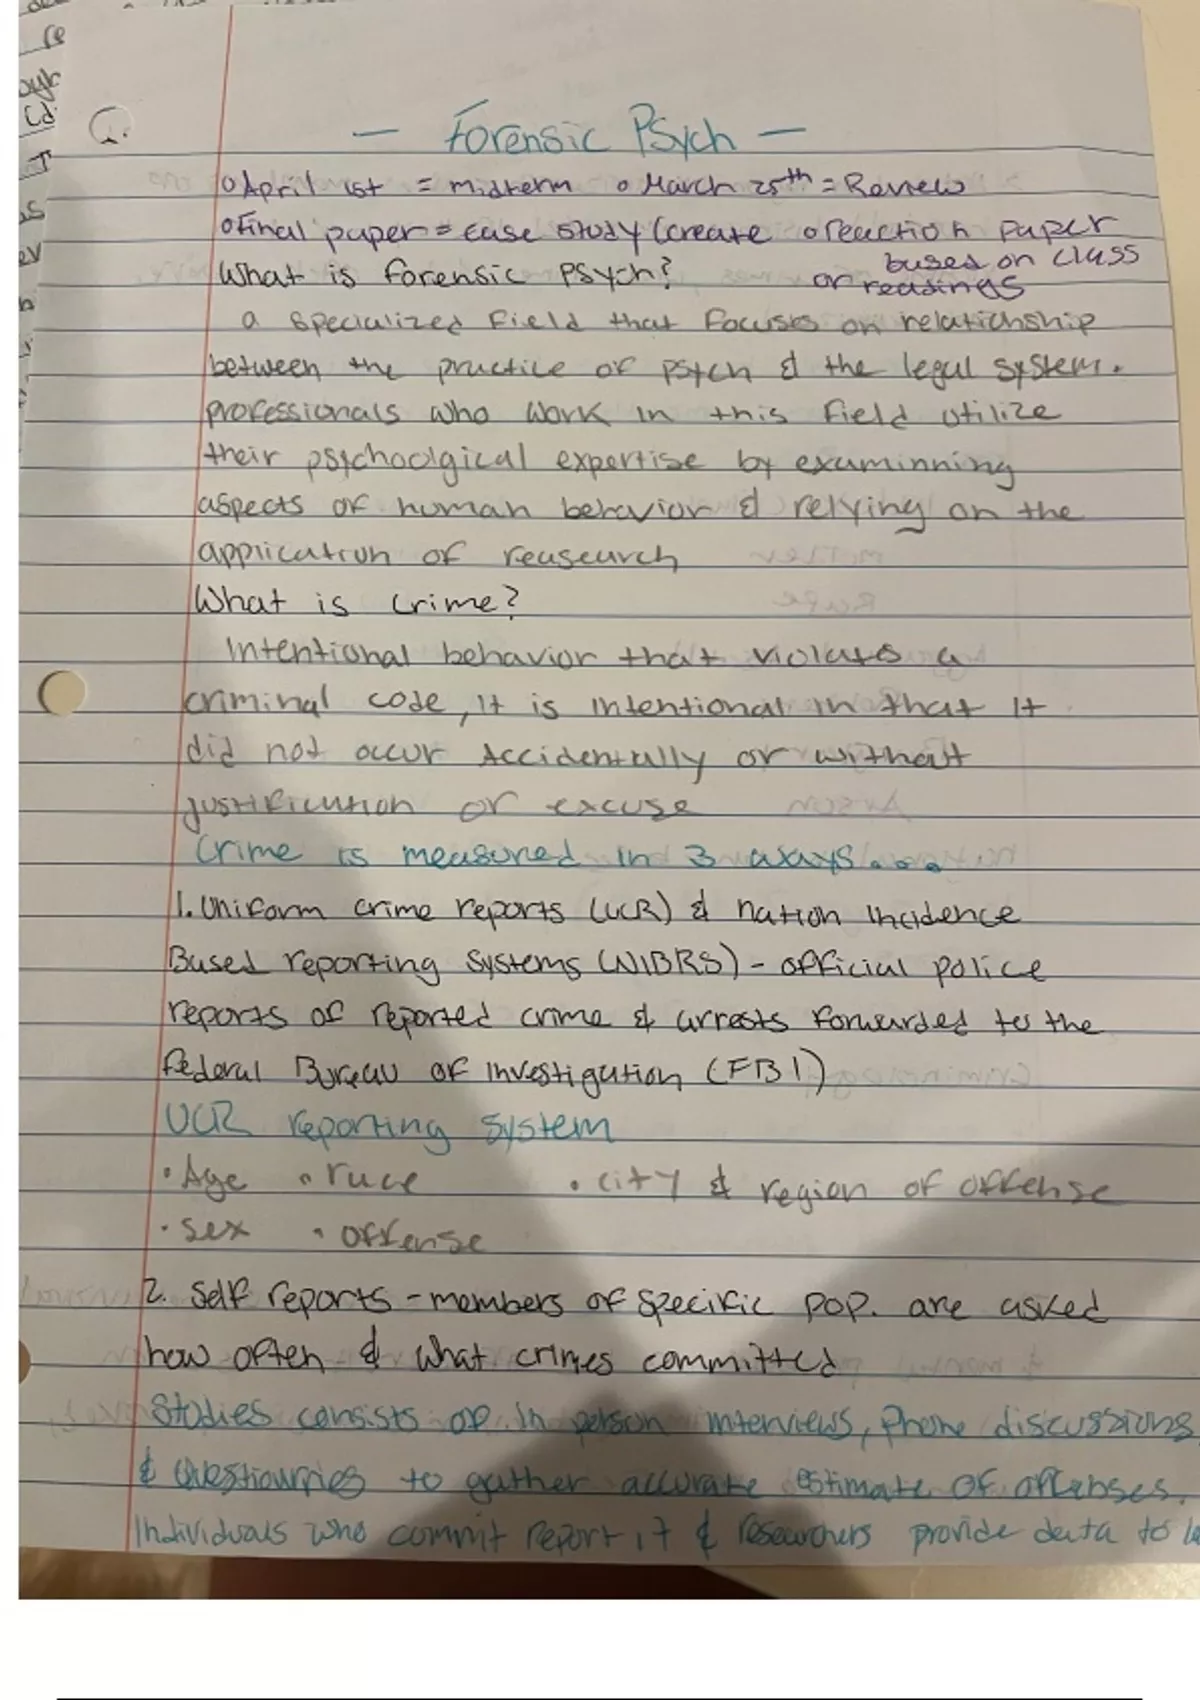 — Forensic Psych —
o April 1st = midterm o March 25th = Review
o Final paper = case study (create o reaction paper
based on class
What is forensic Psych? or readings
a specialized field that focuses on relationship
between the practice of psych & the legal system.
professionals who work in this field utilize
their psychoolgical expertise by examinning
aspects of human behavior & relying on the
application of reasearch
What is crime?
Intentional behavior that violates a
criminal code, it is intentional in that it
did not occur Accidentally or without
justification or excuse
Crime is measured in 3 ways...
1. Uniform crime reports (UCR) & nation incidence
Based reporting Systems (NIBRS) - official police
reports of reported crime & arrests forwarded to the
Federal Bureau of Investigation (FBI)
UCR reporting system
• Age • race • city & region of offense
• sex • offense
2. Self reports - members of specific pop. are asked
how often & what crimes committed
Studies consists of in person interviews, Phone discussions
& to gather accurate estimate of offenses.
Individuals who commit report it & researchers provide data to